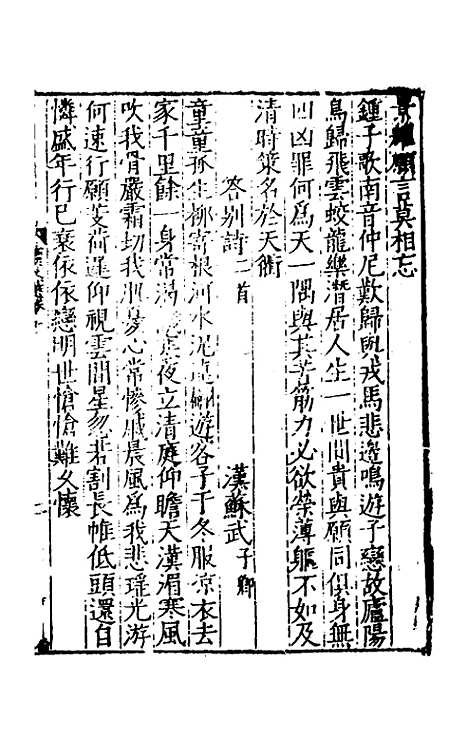 景耀願言莫相忘
鍾子歌南音仲尼歎歸與戎馬悲邊鳴遊子戀故廬陽
鳥歸飛雲蛟龍樂潛居人生一世間貴與願同俱身無
四凶罪何爲天一隅與其苦筋力必欲榮薄軀不如及
清時策名於天衢
答別詩二首
漢蘇武子卿
童童孤生柳寄根河水泥連翩遊客子于冬服涼衣去
家千里餘一身常渴飢寒夜立清庭仰瞻天漢湄寒風
吹我骨嚴霜切我肌憂心常慘戚晨風爲我悲瑤光游
何速行願芰荷遲仰視雲間星忽若割長帷低頭還自
憐盛年行已衰依依戀明世愴愴難久懷